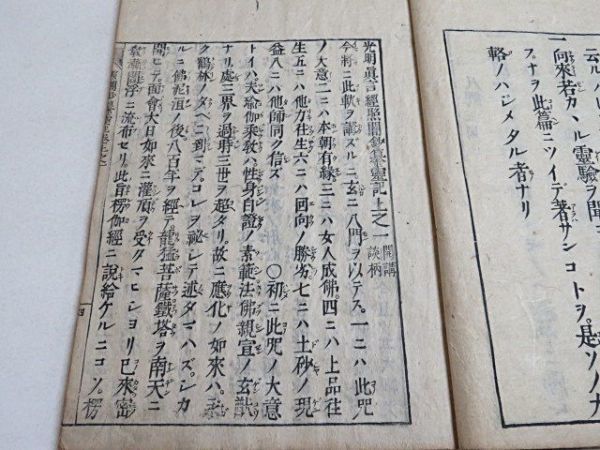 向來者カヽル靈驗ヲ聞
スナヲ此篇ニツイテ著サンコトヲ。是ソノ大
輅ノハジメタル者ナリ
光明眞言經照闇鈔纂靈記上之一 開講談柄
今將ニ此軌ヲ講ズルニ玄ニ八門ヲ以テス。一ニハ此咒
ノ大意二ニハ本朝有縁三ニハ女人成佛。四ニハ上品往
生五ニハ他方往生六ニハ回向ノ勝劣七ニハ土砂ノ現
益八ニハ他師同ク信ズ 〇初ニ此咒ノ大意
トイハ夫瑜伽乘敎ハ性身自證ノ素範法佛親宣ノ玄猷
ナリ處三界ヲ過時三世ヲ超タリ。故ニ應化ノ如來ハ永
ク鶴林ノタベニ到マデコレヲ祕シテ述タマハズ。シカ
ルニ佛泥洹ノ後八百年ヲ經テ龍猛菩薩鐵塔ヲ南天ニ
開ヒテ面會大日如來ニ灌頂ヲ受タマヒシヨリ已來密
敎閻浮ニ流布セリ此旨楞伽經ニ說給ケルニコソ。楞
四